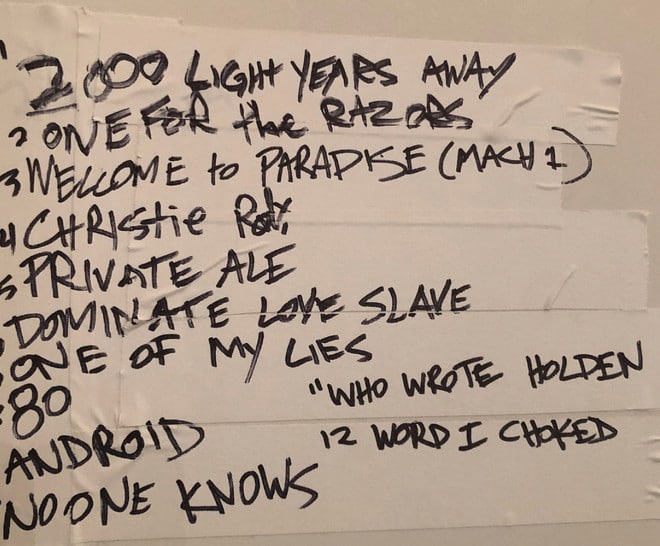 1 2000 LIGHT YEARS AWAY
2 ONE FOR the RAZORS
3 WELCOME to PARADISE (MACH 1)
4 CHRIStie Rd.
5 PRIVATE ALE
DOMINATE LOVE SLAVE
ONE OF MY LIES
80
"WHO WROTE HOLDEN
ANDROID
12 WORD I CHOKED
NO ONE KNOWS